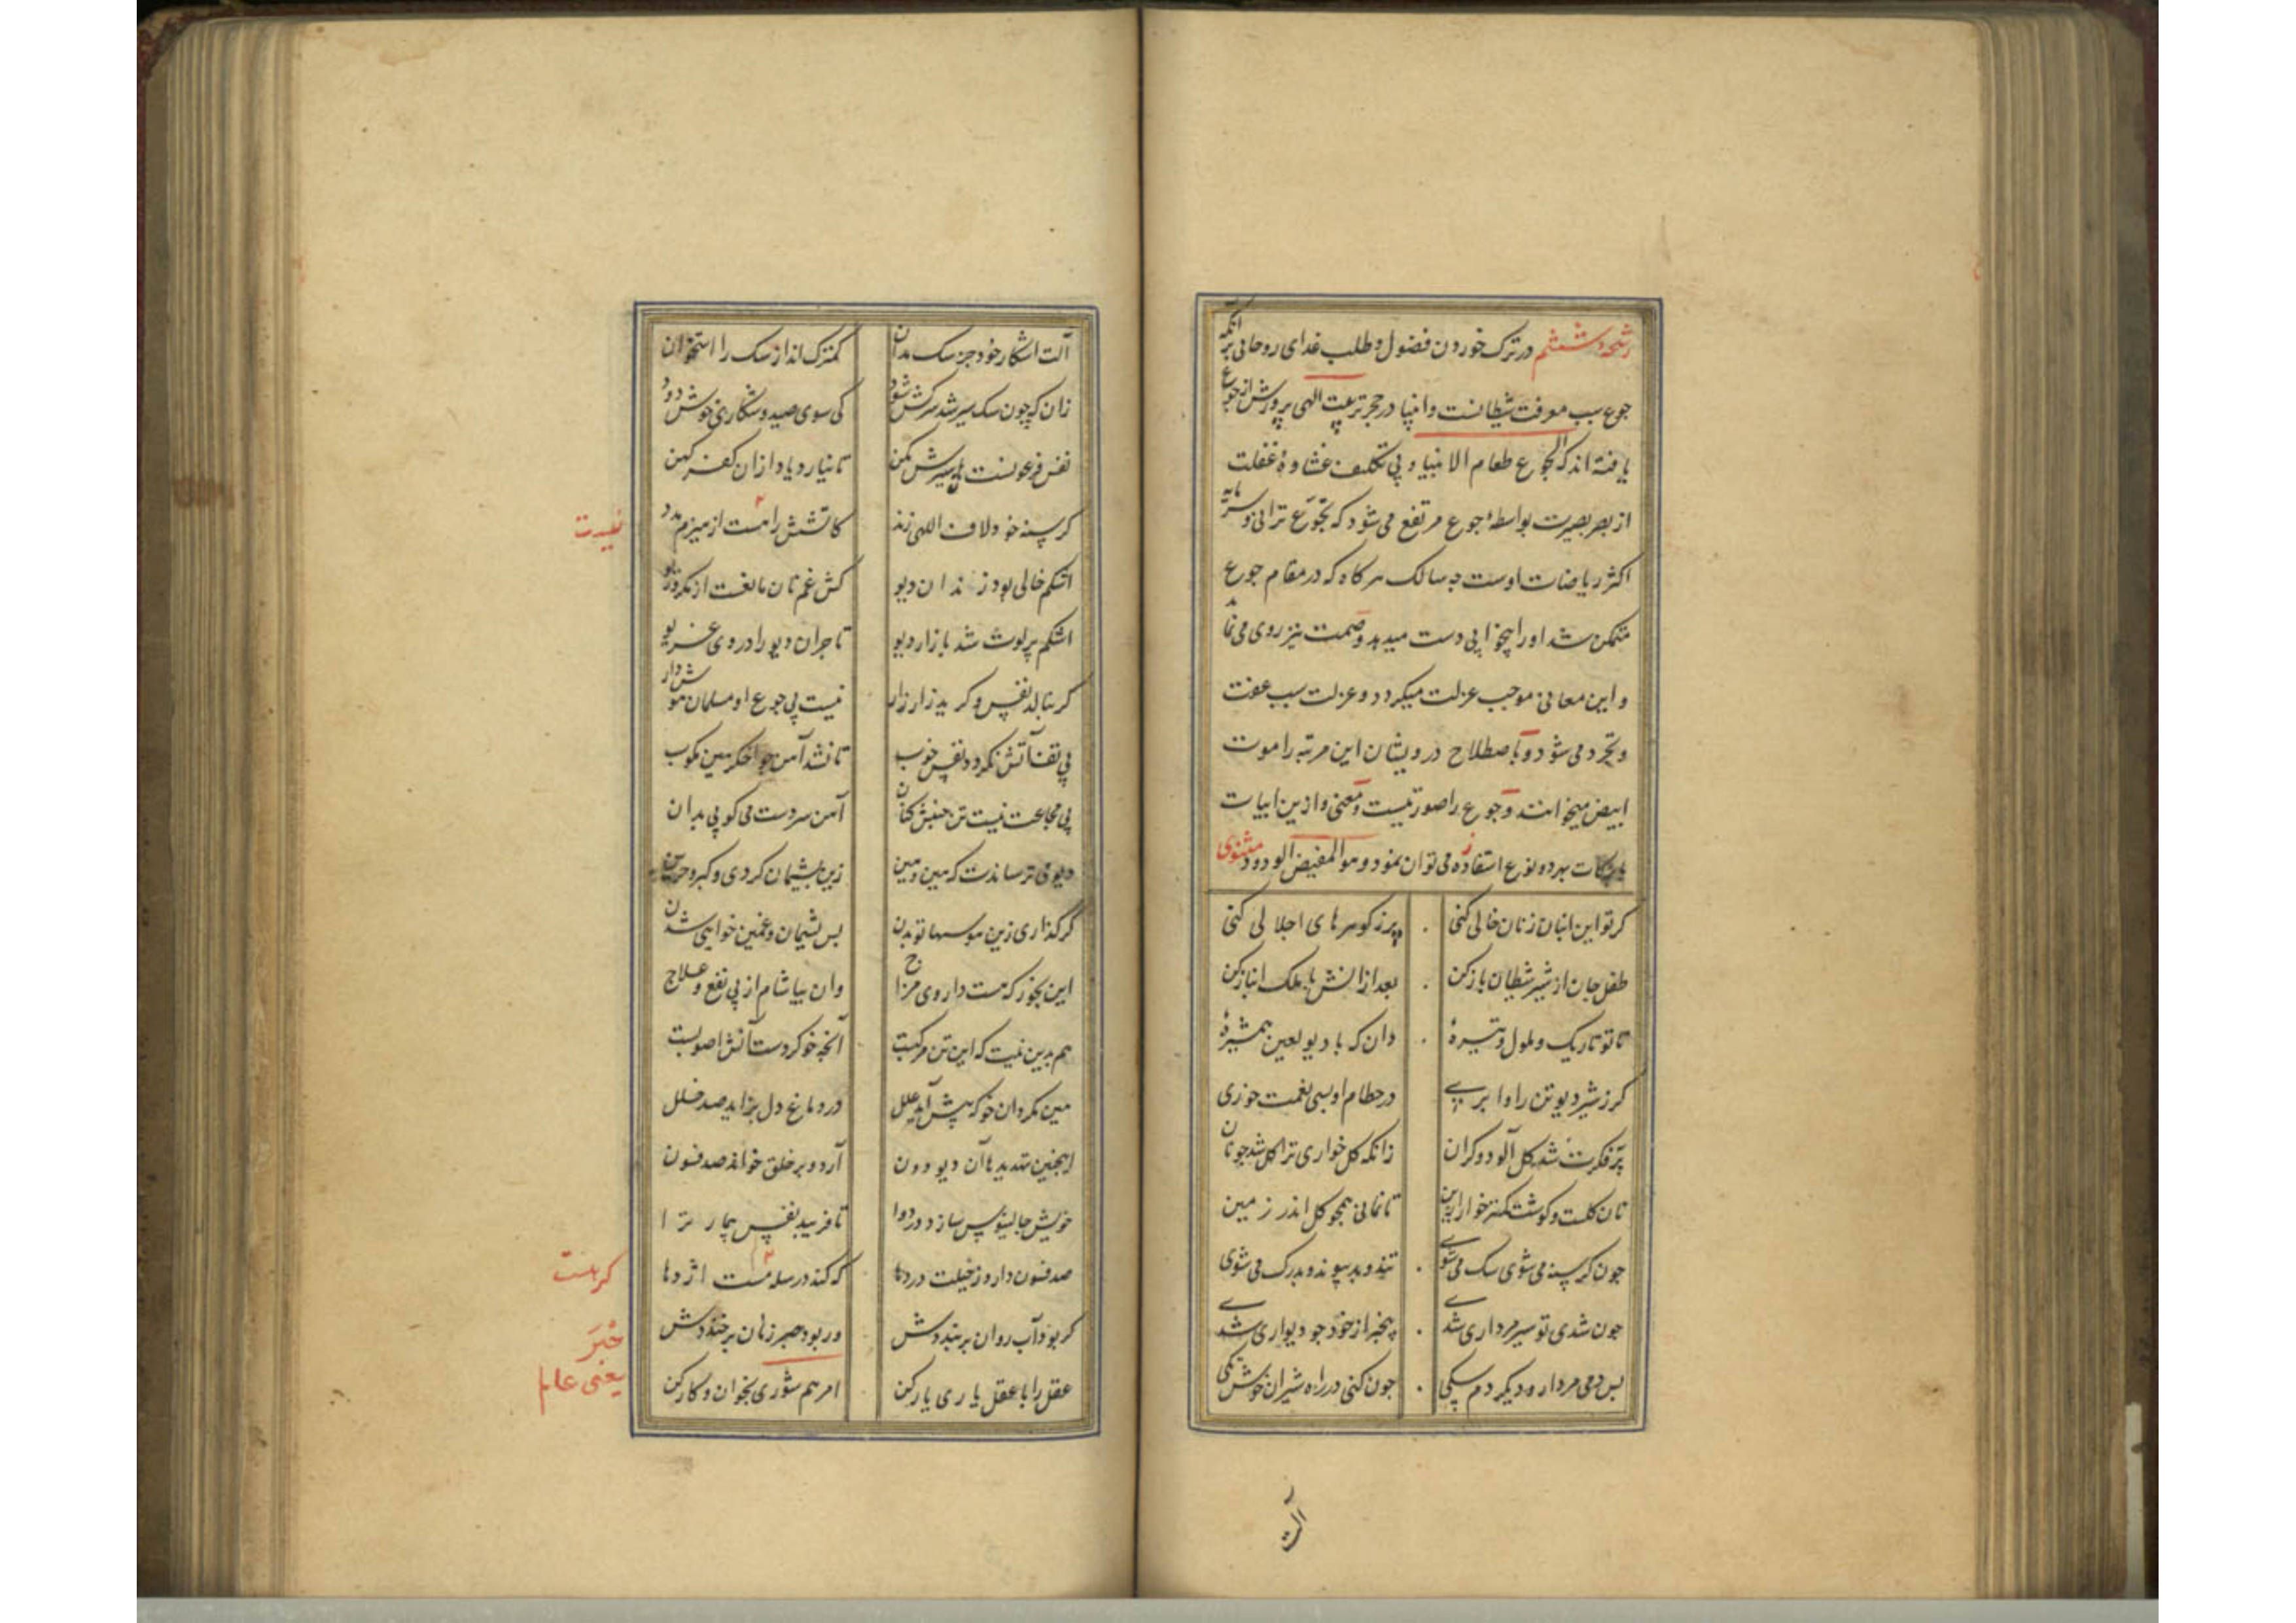 رشحه ششم در ترک خوردن فضول و طلب غدای روحانی بر آنکه
جوع سبب معرفت شیطانست و انبیا در حجر تربیت الهی پرورش از جوع
یافته اند که الجوع طعام الانبیا و بی تکلف غشاوهٔ غفلت
از بصر بصیرت بواسطهٔ جوع مرتفع می شود که تجوع ترانی و سرمایه
اکثر ریاضات اوست چه سالک هر کاه که در مقام جوع
متمکن شد او را بیخوابی دست میدهد و صمت نیز روی می نماید
و این معانی موجب عزلت میکردد و عزلت سبب عفت
و تجرد می شود و باصطلاح درویشان این مرتبه را موت
ابیض میخوانند و جوع را صورتیست و معنی و ازین ابیات
بهر دو نوع استفاده می توان نمود و هو المفیض الودود مثنوی
کر تو این انبان ز نان خالی کنی پر ز کوهرهای اجلالی کنی
طفل جان از شیر شیطان باز کن بعد از انش با ملک انباز کن
تا تو تاریک و ملول و تیرهٔ دان که با دیو لعین همشیرهٔ
کر ز شیر دیو تن را وا بری در حطام او بسی نعمت خوری
پر فکرت شد کل آلود و کران زانکه کل خواری ترا کل شد چو نان
نان کلست و کوشت کمتر خوار ازین تا نمانی همچو کل اندر زمین
چون کرسنه می شوی سک می شوی تند و بد پیوند و بدرک می شوی
چون شدی تو سیر مرداری شدی بیخبر از خود چو دیواری شدی
پس دمی مردار و دیکر دم سکی چون کنی در راه شیران خوش تکی
آلت
آلت اشکار خود جز سک مدان کمترک انداز سک را استخوان
زان که چون سک سیر شد سرکش شود کی سوی صید و شکاری خوش دود
نفس فرعونست هان سیرش مکن تا نیارد یاد از ان کفر کهن
کرسنه خود لاف اللهی زند کاتشش را هست از هیزم مدد
نیست
اشکم خالی بود زندان دیو کش غم نان مانعست از مکر و ریو
اشکم پر لوت شد بازار دیو تاجران دیو را در وی غریو
کر بنالد نفس و کرید زار زار نیست بی جوع او مسلمان هوش دار
بی تف آتش نکردد نفس خوب تا نشد آهن چو اخکر هین مکوب
بی مجاعت نیست تن جنبش کنان آهن سردست می کوبی بدان
دیو می ترساندت که هین و هین زین پشیمان کردی و کردی حزین
کر کذاری زین هوسها تو بدن بس پشیمان و غمین خواهی شدن
این بخور که هست داروی مزاج وان بیاشام از پی نفع و علاج
هم بدین نیت که این تن مرکبست آنچه خو کردست آنش اصوبست
هین مکردان خو که پیش آید علل در دماغ دل بزاید صد خلل
اینچنین تهدیدها آن دیو دون آرد و بر خلق خواند صد فسون
خویش جالینوس سازد در دوا تا فریبد نفس بیمار ترا
صد فسون دارد ز حیلت در دها که کند در سله هست اژدها
کر هست
کر بود آب روان بر بنددش ور بود حبر زمان بر خنددش
حبر
یعنی عالم
عقل را با عقل یاری یار کن امرهم شوری بخوان و کار کن